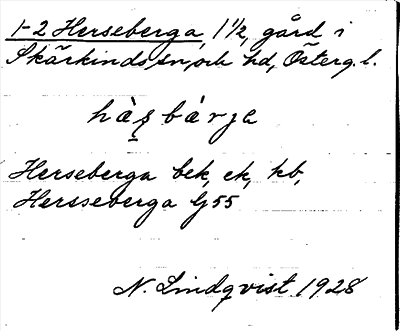 1-2 Herseberga, 1 1/2, gård i
Skärkinds sn, och hd, Österg. l.
hàʂbárja
Herseberga bek, ek, kb,
Hersseberga Gj 55
N. Lindqvist 1928